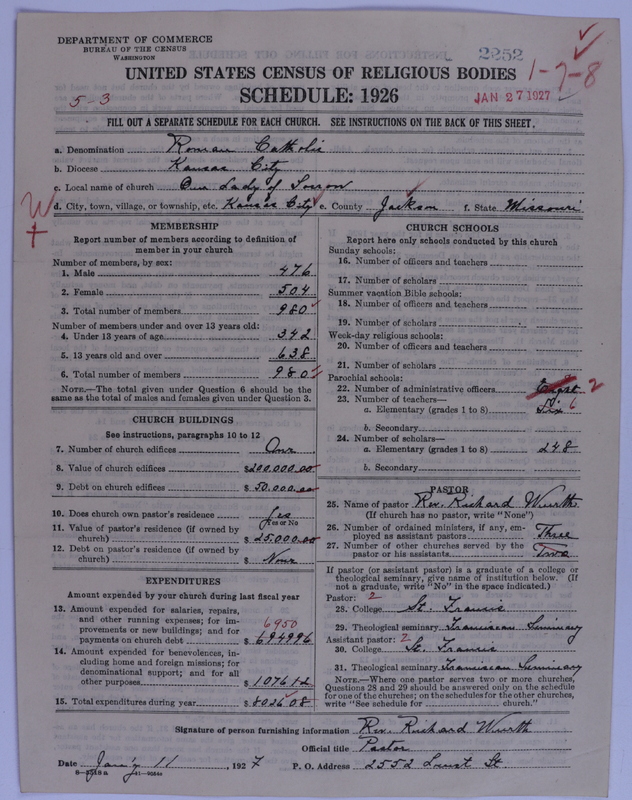 DEPARTMENT OF COMMERCE
BUREAU OF THE CENSUS
WASHINGTON
2252
1-7-8
UNITED STATES CENSUS OF RELIGIOUS BODIES
5-3
SCHEDULE: 1926
JAN 27 1927
FILL OUT A SEPARATE SCHEDULE FOR EACH CHURCH. SEE INSTRUCTIONS ON THE BACK OF THIS SHEET.
a. Denomination Roman Catholic
b. Diocese Kansas City
c. Local name of church Our Lady of Sorrow
d. City, town, village, or township, etc. Kansas City e. County Jackson f. State Missouri
MEMBERSHIP
Report number of members according to definition of
member in your church
Number of members, by sex:
1. Male 476
2. Female 504
3. Total number of members 980
Number of members under and over 13 years old:
4. Under 13 years of age 342
5. 13 years old and over 638
6. Total number of members 980
NOTE.—The total given under Question 6 should be the
same as the total of males and females given under Question 3.
CHURCH BUILDINGS
See instructions, paragraphs 10 to 12
7. Number of church edifices One
8. Value of church edifices $200.000.00
9. Debt on church edifices $50.000.00
10. Does church own pastor's residence? Yes
Yes or No
11. Value of pastor's residence (if owned by
church) $25.000.00
12. Debt on pastor's residence (if owned by
church) $ None
EXPENDITURES
Amount expended by your church during last fiscal year
13. Amount expended for salaries, repairs,
and other running expenses; for im-
provements or new buildings; and for
payments on church debt 6950 $694996
14. Amount expended for benevolences, in-
cluding home and foreign missions; for
denominational support; and for all
other purposes $107612
15. Total expenditures during year $802608
CHURCH SCHOOLS
Report here only schools conducted by this church
Sunday schools:
16. Number of officers and teachers
17. Number of scholars
Summer vacation Bible schools:
18. Number of officers and teachers
19. Number of scholars
Week-day religious schools:
20. Number of officers and teachers
21. Number of scholars
Parochial schools:
22. Number of administrative officers 2
23. Number of teachers—
a. Elementary (grades 1 to 8) Six 6
b. Secondary
24. Number of scholars—
a. Elementary (grades 1 to 8) 248
b. Secondary
PASTOR
25. Name of pastor Rev. Richard Wurth
(If church has no pastor, write "None")
26. Number of ordained ministers, if any, em-
ployed as assistant pastors Three
27. Number of other churches served by the
pastor or his assistants Two
If pastor (or assistant pastor) is a graduate of a college or
theological seminary, give name of institution below. (If
not a graduate, write "No" in the space indicated.)
Pastor: 2
28. College St. Francis
29. Theological seminary Franciscan Seminary
Assistant pastor: 2
30. College St. Francis
31. Theological seminary Franciscan Seminary
NOTE.—Where one pastor serves two or more churches,
Questions 28 and 29 should be answered only on the schedule
for one of the churches; on the schedules for the other churches,
write "See schedule for church."
Signature of person furnishing information Rev. Richard Wurth
Official title Pastor
Date Jan'y 11, 1927 P. O. Address 2552 Locust St